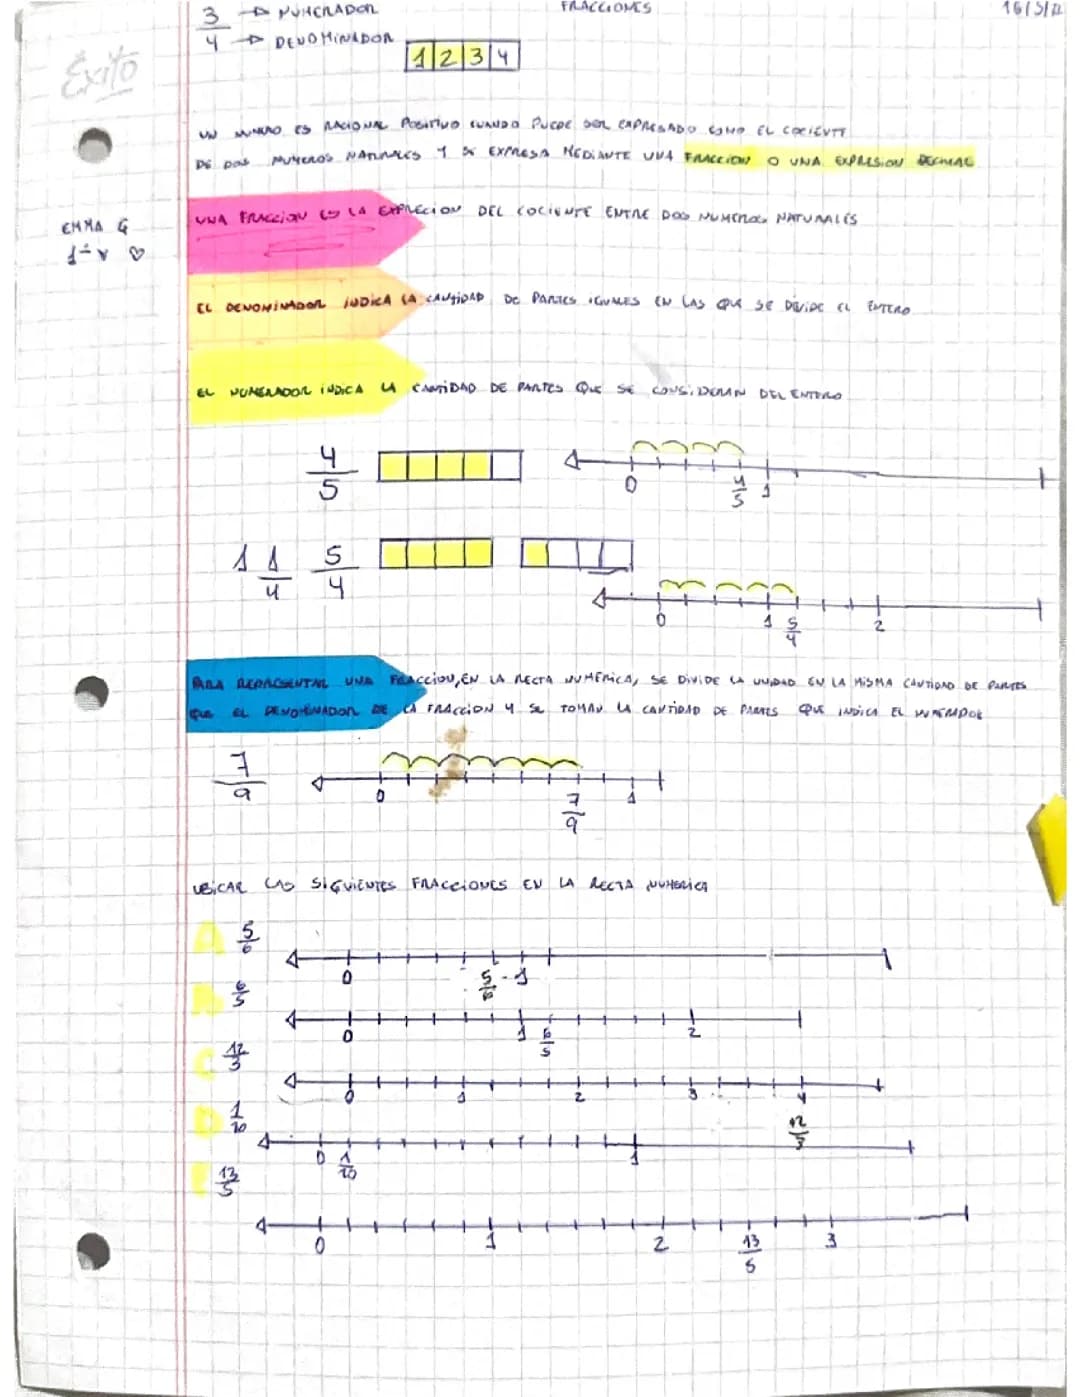 FRACCIONES
16/5/22
3/4 → NUMERADOR
→ DENOMINADOR
1 2 3 4
Éxito
UN NUMERO ES RACIONAL POSITIVO CUANDO PUEDE SER EXPRESADO COMO EL COCIENTE
DE DOS NUMEROS NATURALES Y SE EXPRESA MEDIANTE UNA FRACCION O UNA EXPRESION DECIMAL
UNA FRACCION ES LA EXPRECION DEL COCIENTE ENTRE DOS NUMEROS NATURALES
EMMA G
1° V ♡
EL DENOMINADOR INDICA LA CANTIDAD DE PARTES IGUALES EN LAS QUE SE DIVIDE EL ENTERO
EL NUMERADOR INDICA LA CANTIDAD DE PARTES QUE SE CONSIDERAN DEL ENTERO
4/5
0 4/5 1
1 1/4 5/4
0 1 5/4 2
PARA REPRESENTAR UNA FRACCION, EN LA RECTA NUMÉRICA, SE DIVIDE LA UNIDAD EN LA MISMA CANTIDAD DE PARTES
QUE EL DENOMINADOR DE LA FRACCION Y SE TOMAN LA CANTIDAD DE PARTES QUE INDICA EL NUMERADOR
7/9
0 7/9 1
UBICAR LAS SIGUIENTES FRACCIONES EN LA RECTA NUMERICA
A 5/6
0 5/6 1
B 6/5
0 1 6/5 2
C 12/3
0 1 2 3 4
12/3
D 1/10
0 1/10 1
E 13/5
0 1 2 13/5 3